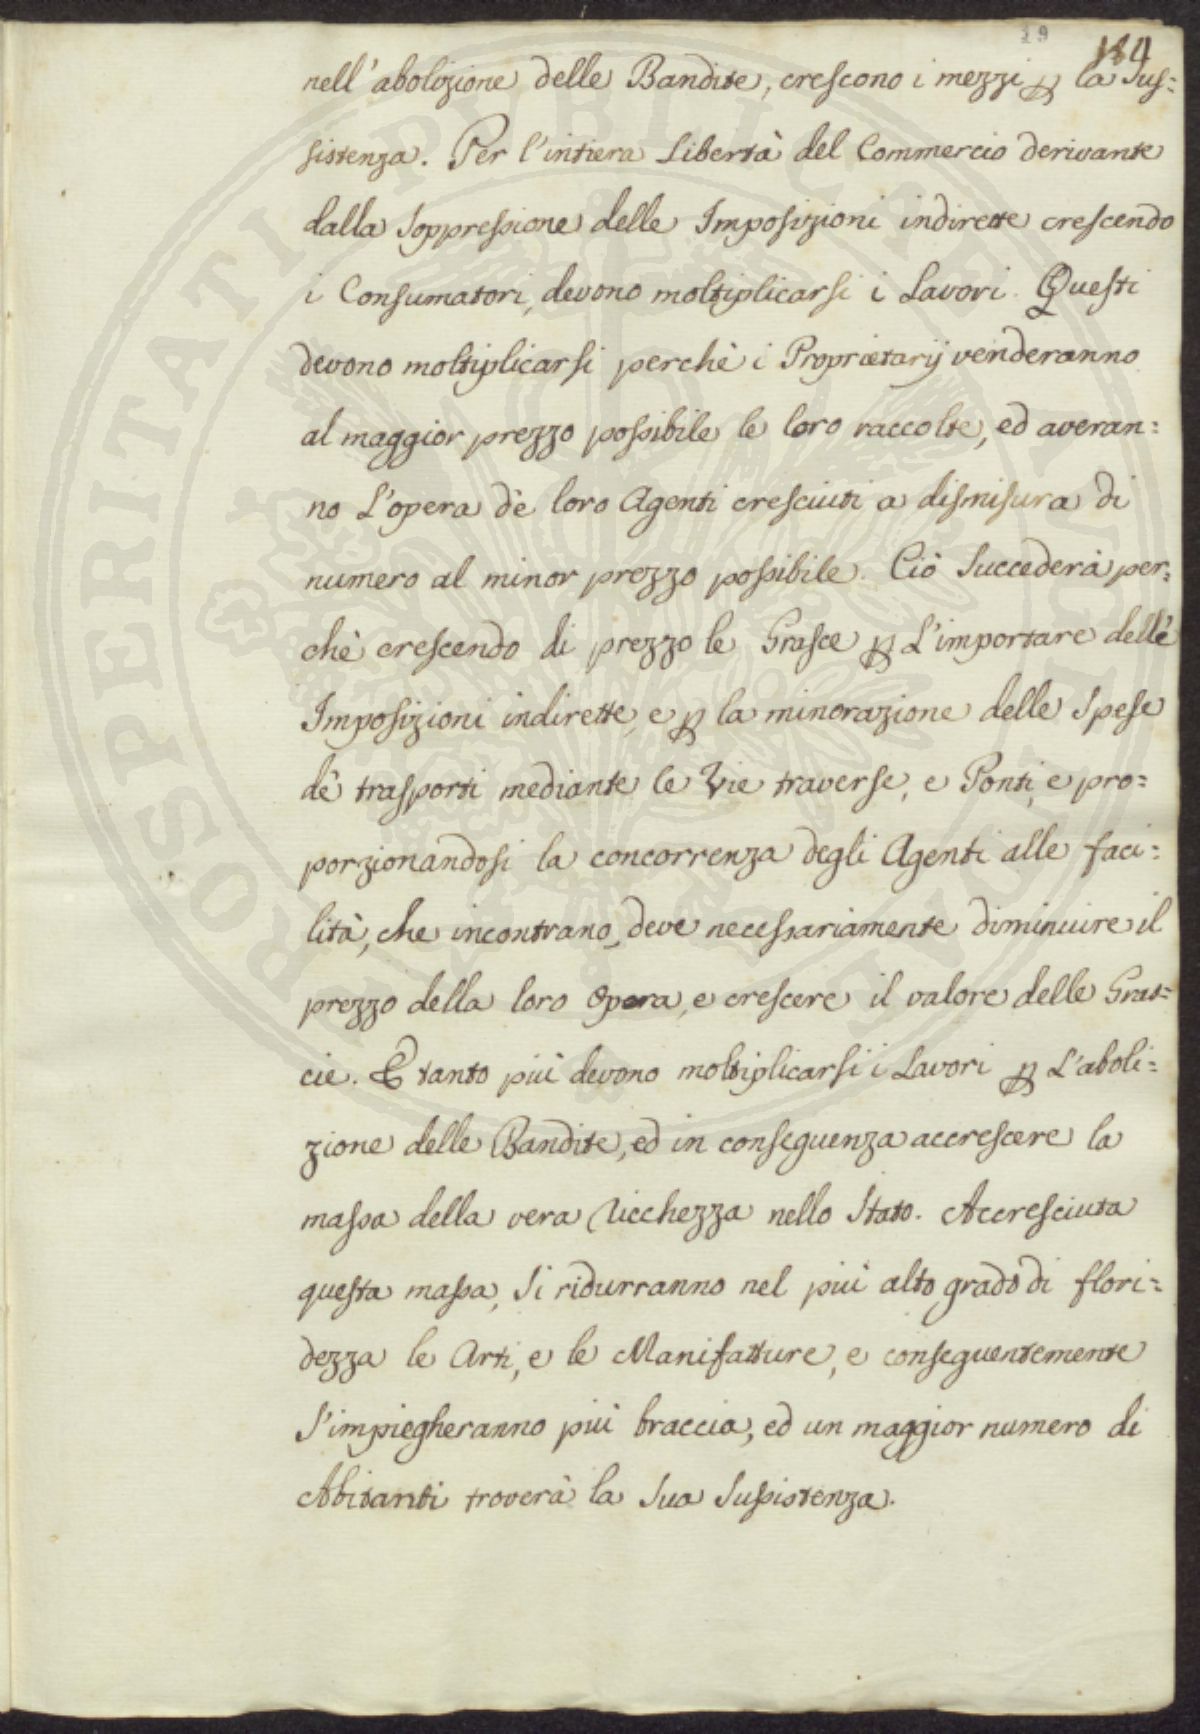 29
184
nell'abolizione delle Bandite, crescono i mezzi p la Sus=
sistenza. Per l'intiera Libertà del Commercio derivante
dalla Soppressione delle Imposizioni indirette crescendo
i Consumatori, devono moltiplicarsi i Lavori. Questi
devono moltiplicarsi perchè i Proprietarij venderanno
al maggior prezzo possibile le loro raccolte, ed averan=
no L'opera dè loro Agenti cresciuti a dismisura di
numero al minor prezzo possibile. Ciò Succederà per=
chè crescendo di prezzo le Grasce p L'importare delle
Imposizioni indirette, e p la minorazione delle Spese
dè trasporti mediante le Vie traverse, e Ponti, e pro=
porzionandosi la concorrenza degli Agenti alle faci=
lità, che incontrano, deve necessariamente diminuire il
prezzo della loro Opera, e crescere il valore delle Gras=
cie. E tanto più devono moltiplicarsi i Lavori p L'aboli=
zione delle Bandite, ed in conseguenza accrescere la
massa della vera Ricchezza nello Stato. Accresciuta
questa massa, Si ridurranno nel più alto grado di flori=
dezza le Arti, e le Manifatture, e conseguentemente
S'impiegheranno più braccia, ed un maggior numero di
Abitanti troverà la Sua Sussistenza.
PROSPERITATI PUBLICAE